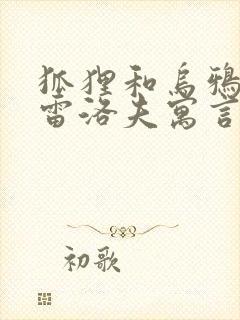 狐狸和乌鸦
雷洛夫寓言
初歌